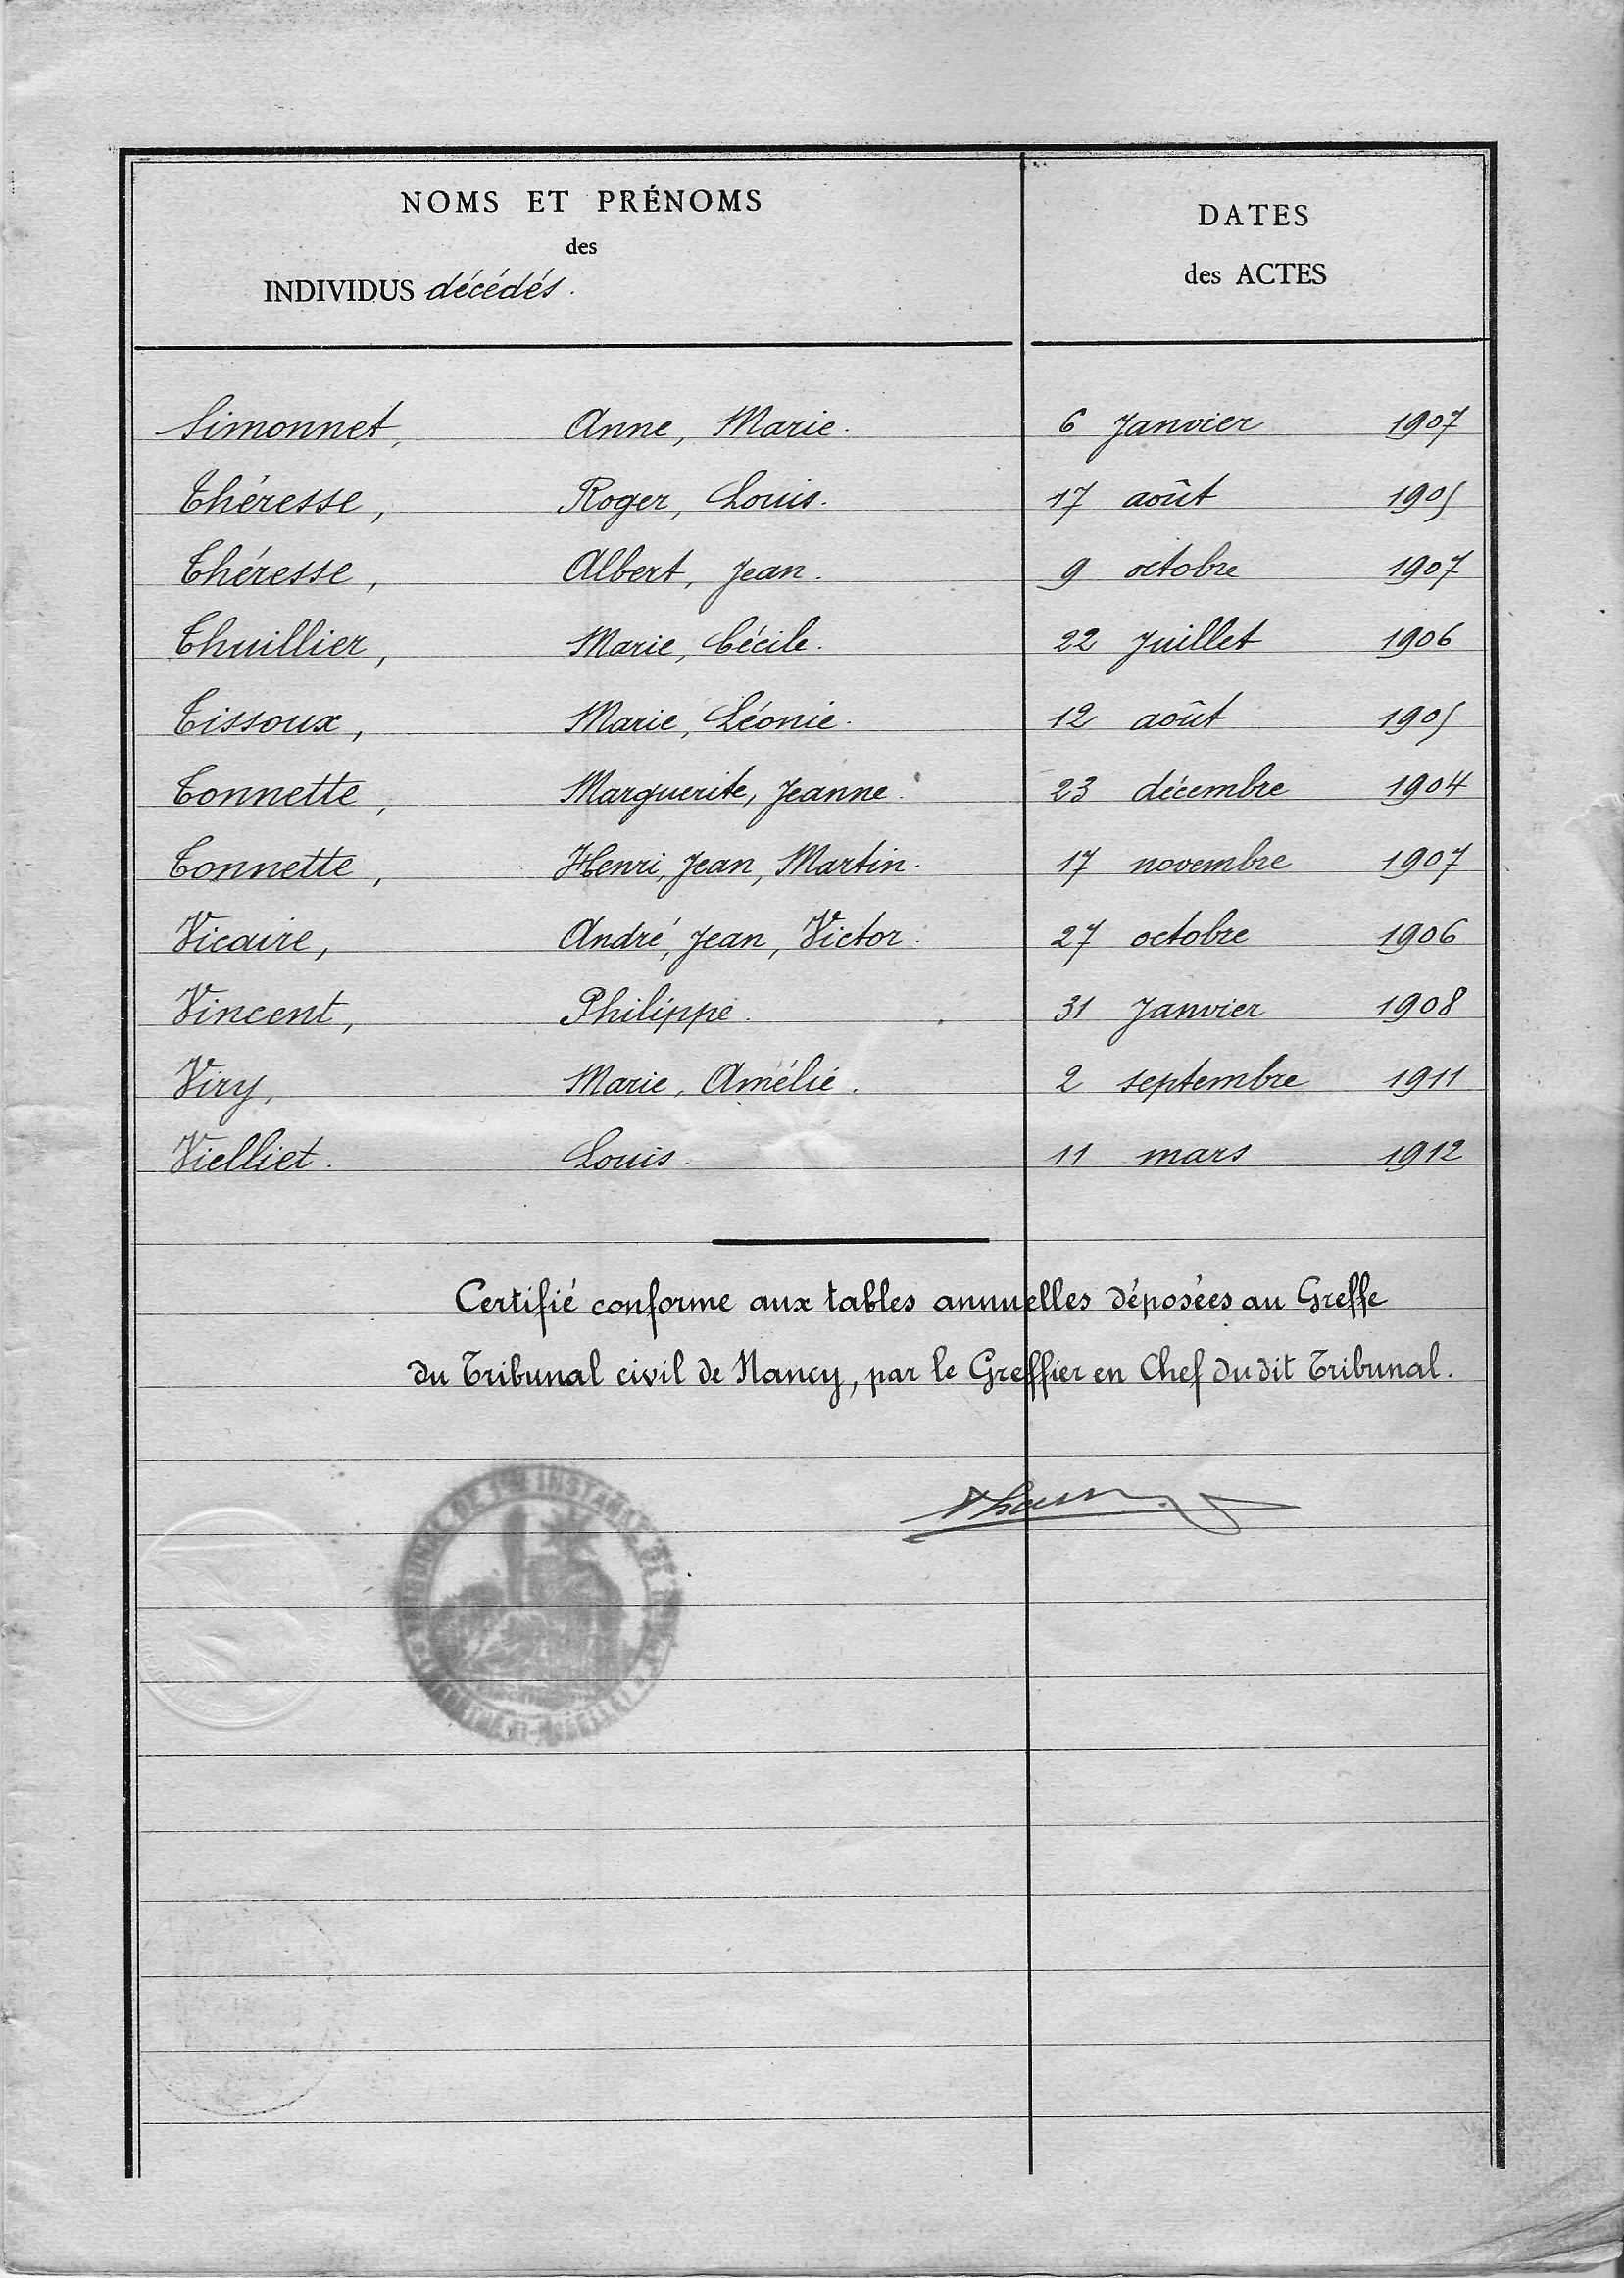 NOMS ET PRÉNOMS
des
INDIVIDUS décédés.
DATES
des ACTES
Simonnet, Anne, Marie. 6 Janvier 1907
Théresse, Roger, Louis. 17 août 1905
Théresse, Albert, Jean. 9 octobre 1907
Thuillier, Marie, Cécile. 22 Juillet 1906
Tissoux, Marie, Léonie. 12 août 1905
Tonnette, Marguerite, Jeanne. 23 décembre 1904
Tonnette, Henri, Jean, Martin. 17 novembre 1907
Vicaire, André, Jean, Victor. 27 octobre 1906
Vincent, Philippe. 31 Janvier 1908
Viry, Marie, Amélie. 2 septembre 1911
Vielliet. Louis. 11 mars 1912
Certifié conforme aux tables annuelles déposées au Greffe
du Tribunal civil de Nancy, par le Greffier en Chef du dit Tribunal.
TRIBUNAL DE 1RE INSTANCE DE